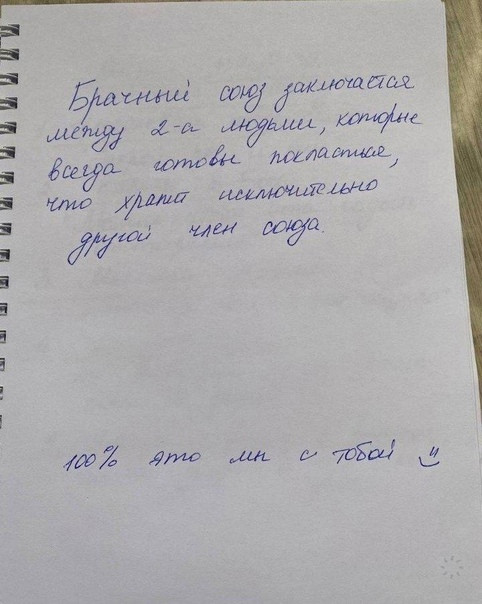 Брачный союз заключается
между 2-а людьми, которые
всегда готовы поклясться,
что храпит исключительно
другой член союза.
100% это мы с тобой